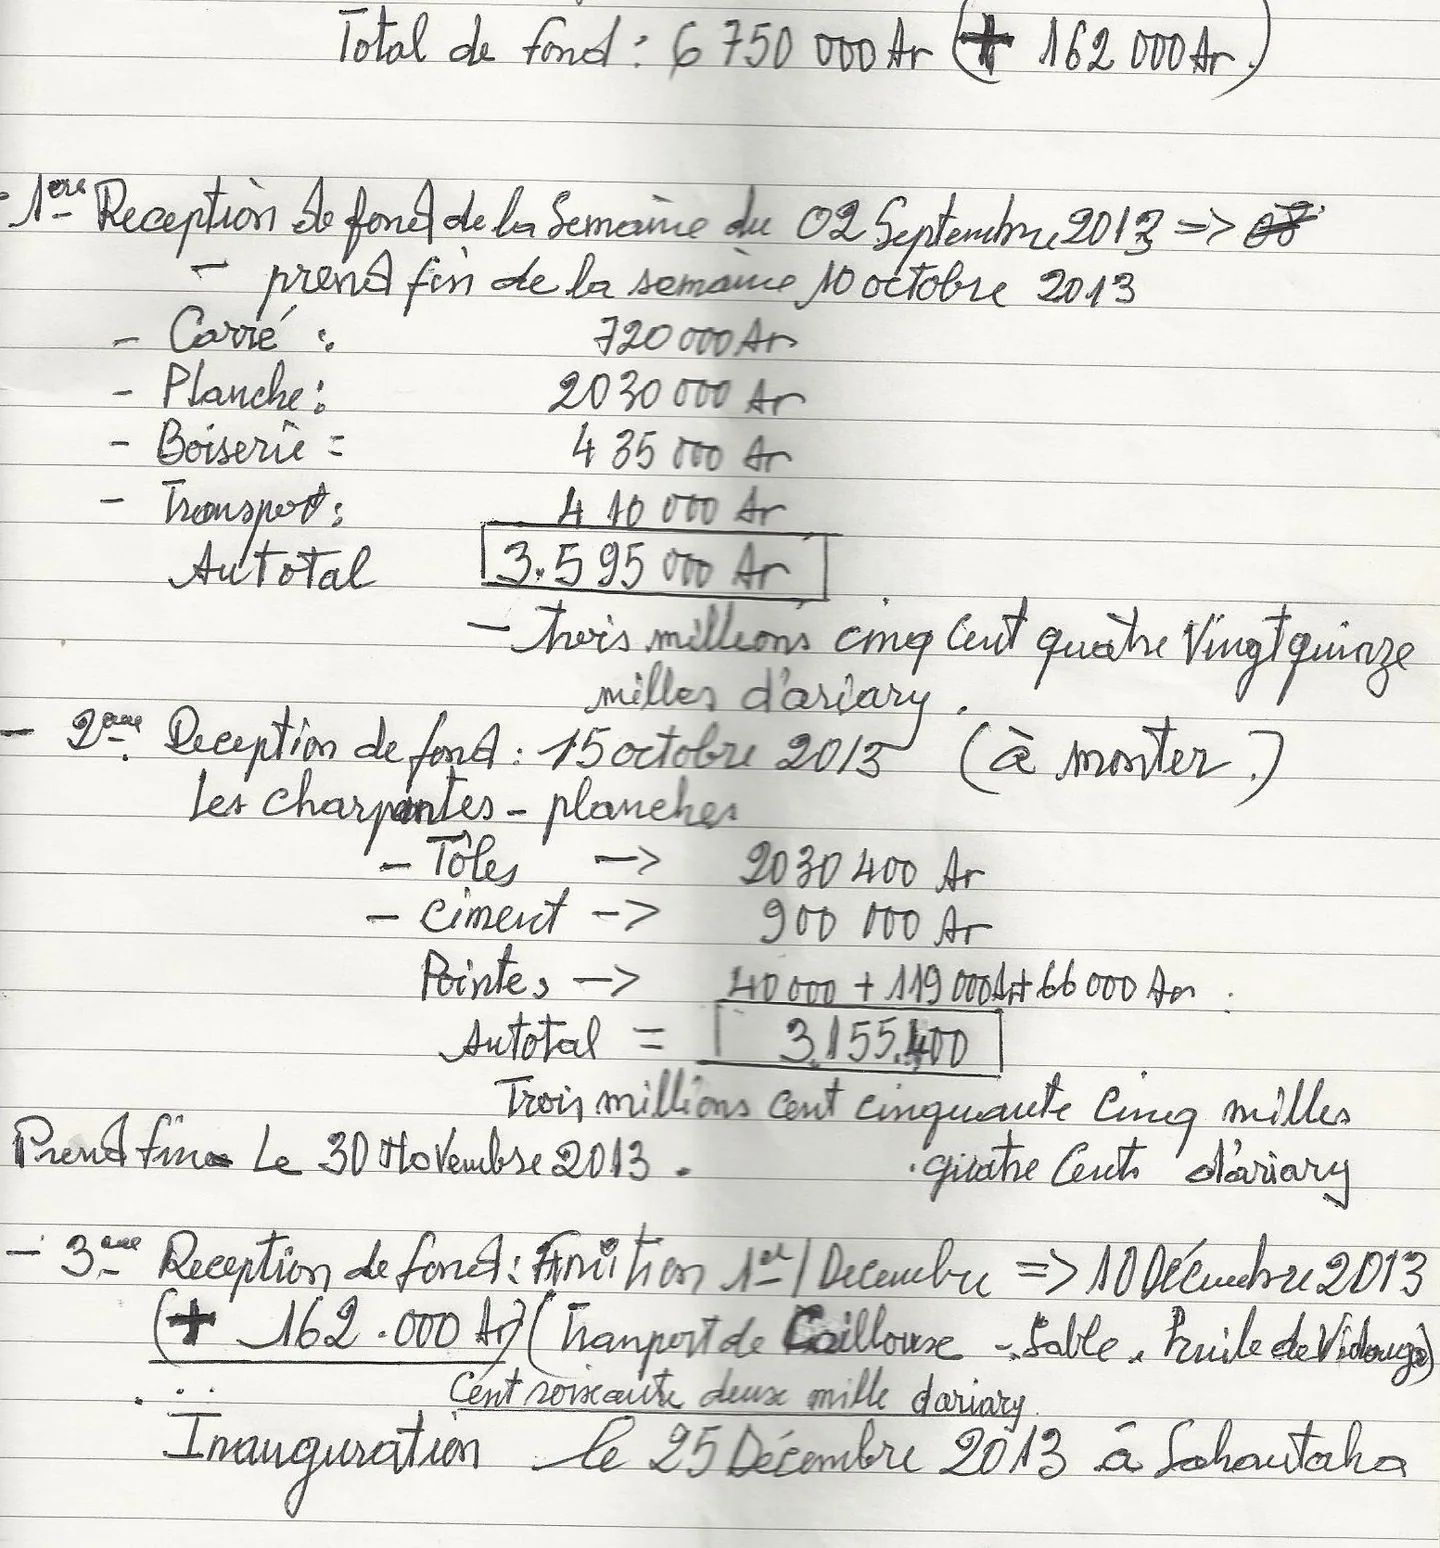 Total de fond : 6 750 000 Ar (+ 162 000 Ar.)
- 1ère Reception de fond de la Semaine du 02 Septembre 2013 =>
- prend fin de la semaine 10 octobre 2013
- Carré : 720 000 Ar
- Planche : 2030 000 Ar
- Boiserie = 435 000 Ar
- Transport : 410 000 Ar
Au total 3.595 000 Ar
- trois millions cinq Cent quatre Vingt quinze
milles d'ariary.
- 2ème Reception de fond : 15 octobre 2013 (à monter.)
les charpentes - planches
- Tôles -> 2030 400 Ar
- Ciment -> 900 000 Ar
Pointes -> 40 000 + 119 000 Ar + 66 000 Ar
Au total = 3.155.400
Trois millions cent cinquante Cinq milles
Prend fin Le 30 Novembre 2013. quatre Cents d'ariary
- 3ème Reception de fond : Finition 1er / Decembre => 10 Décembre 2013
(+ 162.000 Ar) (Tranport de Caillouse - Sable. Huile de Vidange)
Cent soixante deux mille dariary.
Inauguration le 25 Décembre 2013 à Sahantaha